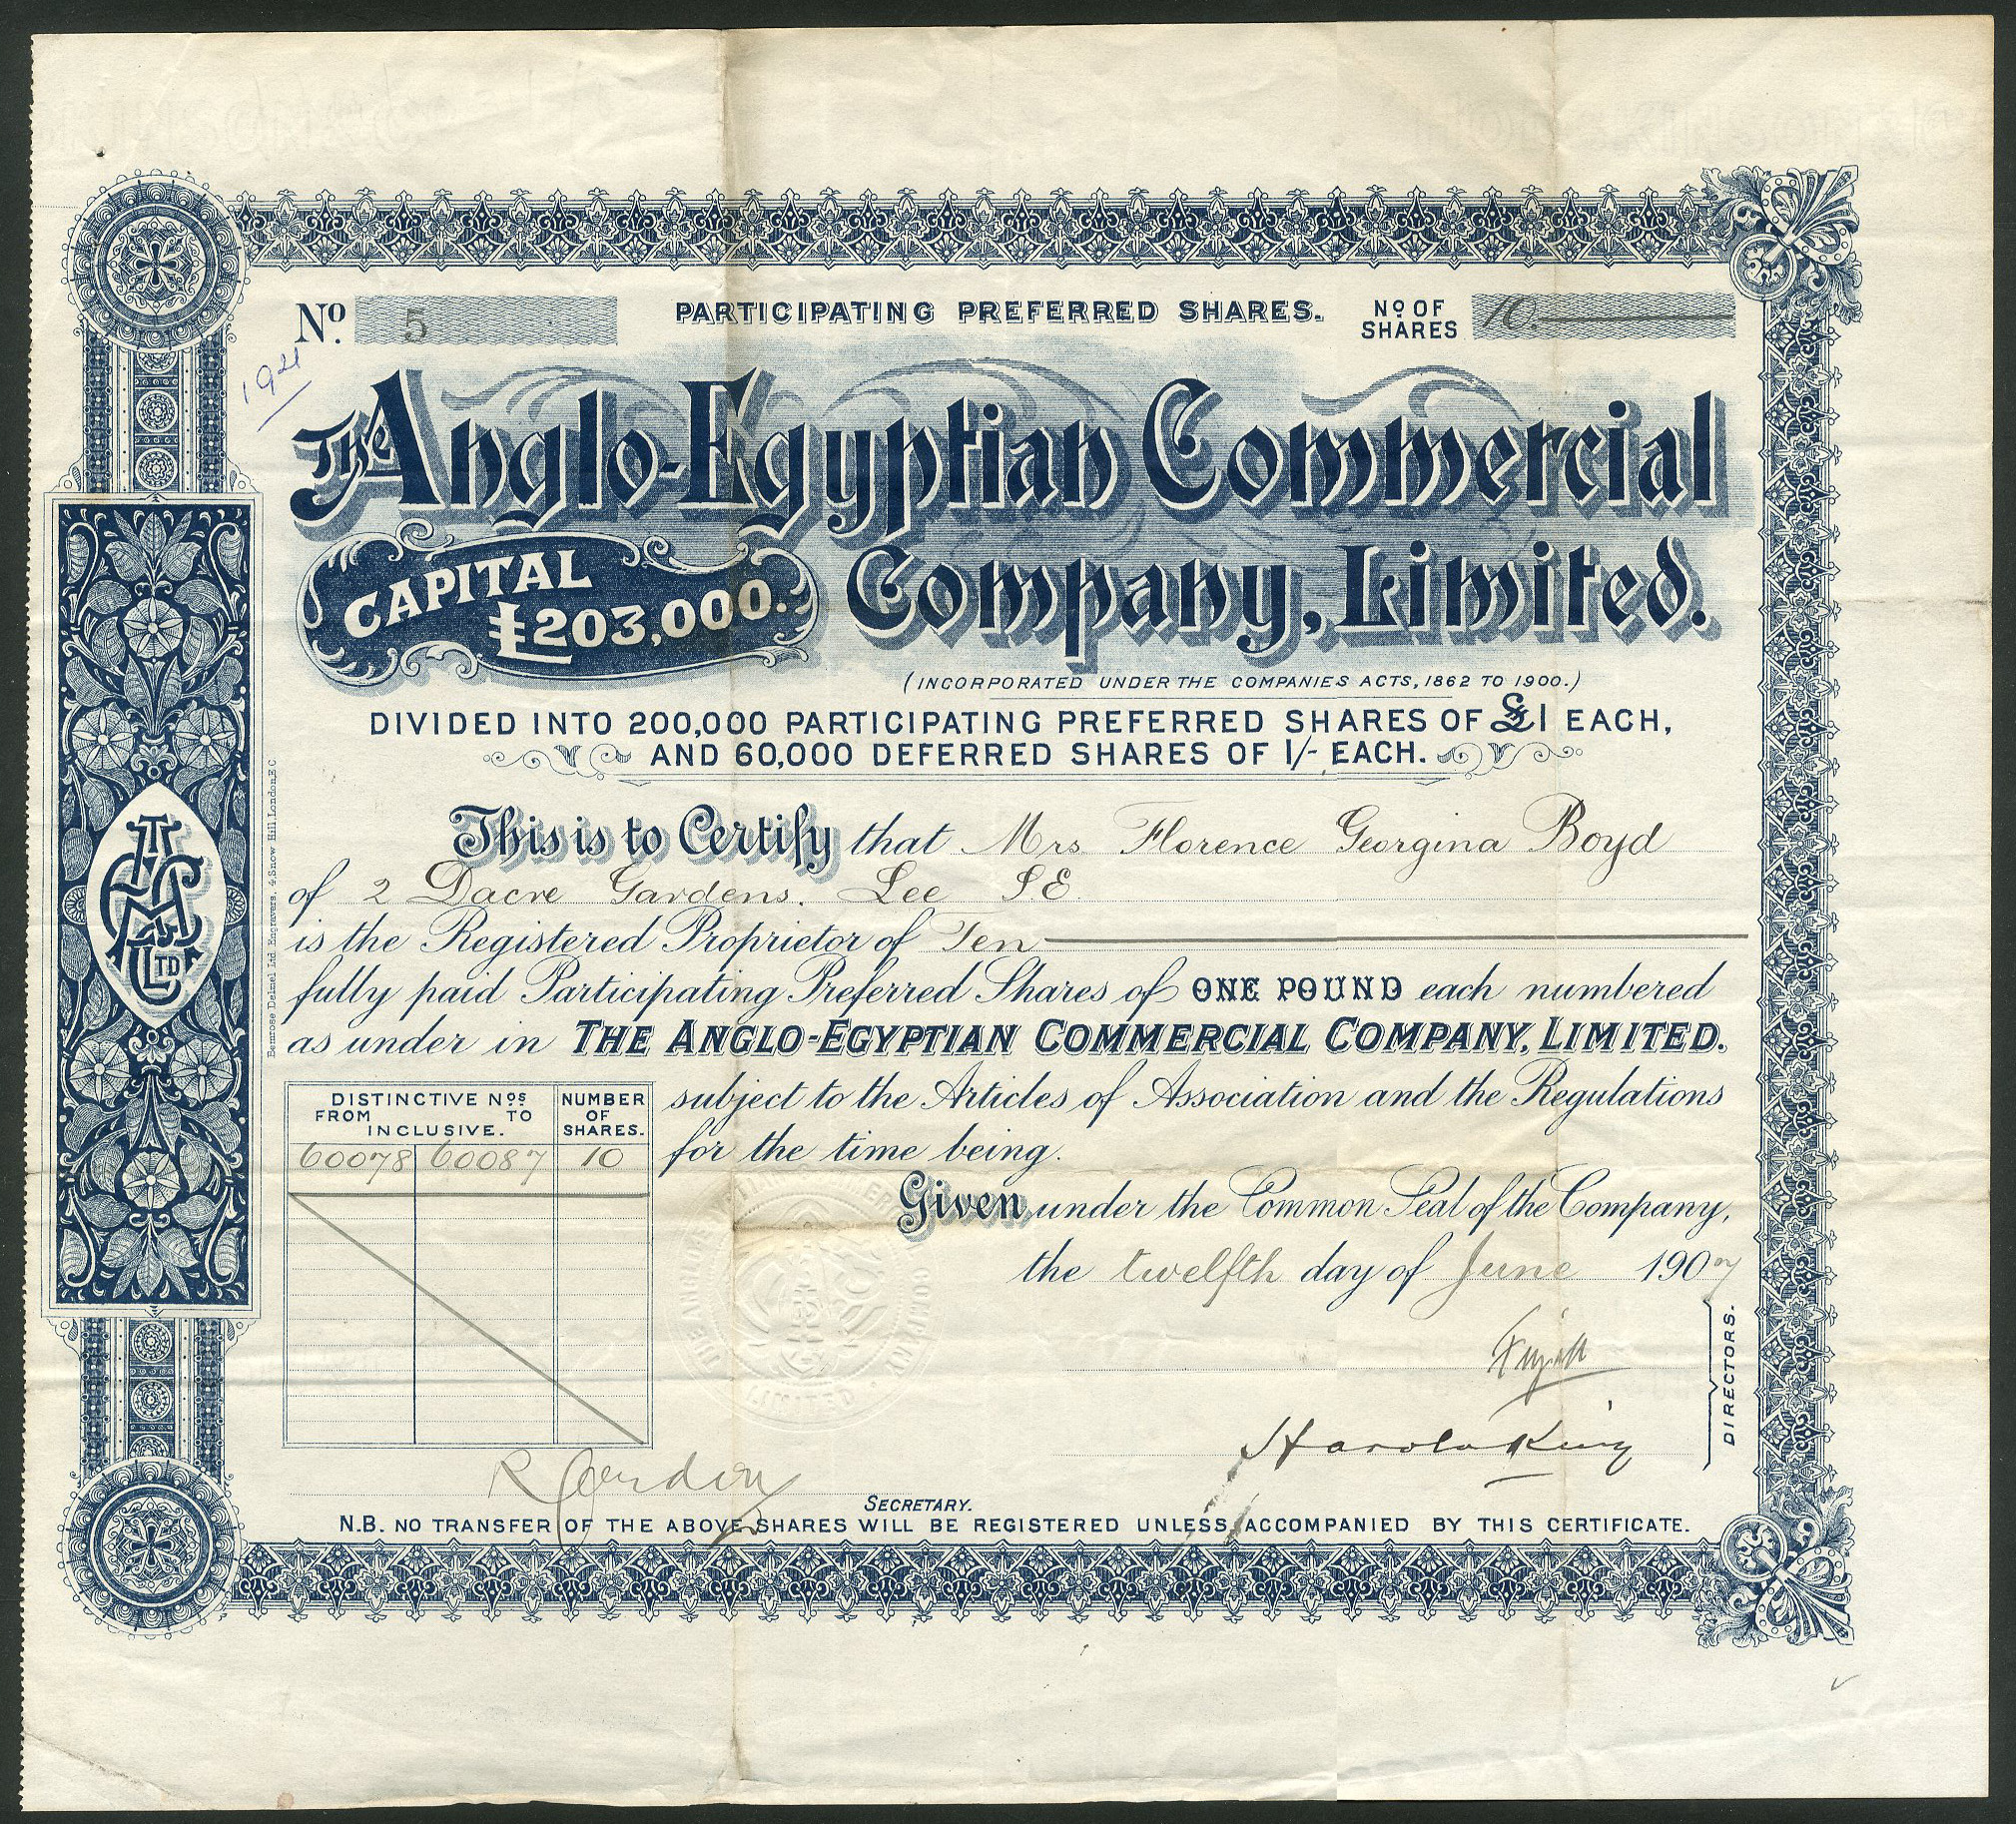 No. 5 PARTICIPATING PREFERRED SHARES. No. OF SHARES 10.
194
The Anglo-Egyptian Commercial
Company, Limited.
CAPITAL
£203,000.
(INCORPORATED UNDER THE COMPANIES ACTS, 1862 TO 1900.)
DIVIDED INTO 200,000 PARTICIPATING PREFERRED SHARES OF £1 EACH,
AND 60,000 DEFERRED SHARES OF 1/- EACH.
This is to Certify that Mrs Florence Georgina Boyd
of 2 Dacre Gardens. Lee S.E.
is the Registered Proprietor of Ten
fully paid Participating Preferred Shares of ONE POUND each numbered
as under in THE ANGLO-EGYPTIAN COMMERCIAL COMPANY, LIMITED.
subject to the Articles of Association and the Regulations
for the time being.
DISTINCTIVE Nos
FROM TO
INCLUSIVE.
NUMBER
OF
SHARES.
60078 60087 10
Given under the Common Seal of the Company,
the twelfth day of June 1907
Harold King
DIRECTORS.
SECRETARY.
N.B. NO TRANSFER OF THE ABOVE SHARES WILL BE REGISTERED UNLESS ACCOMPANIED BY THIS CERTIFICATE.
LTD
Bemrose Dalziel Ltd. Engravers. 4, Snow Hill, London, E.C.
LIMITED